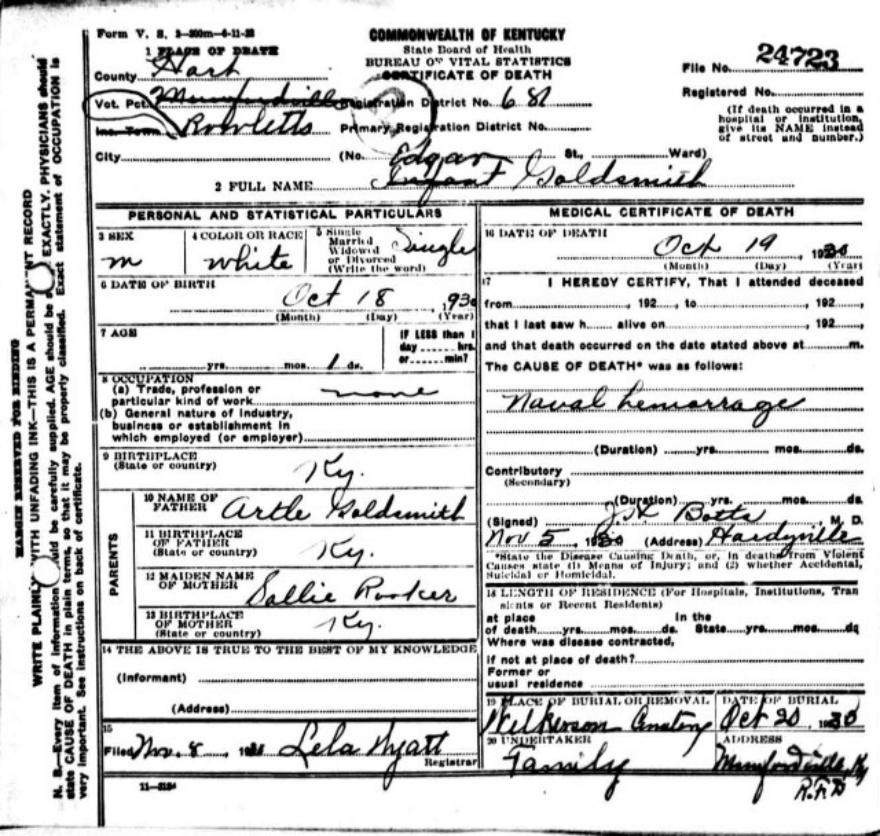 Form V. S. 3-200m-6-11-28
COMMONWEALTH OF KENTUCKY
State Board of Health
BUREAU OF VITAL STATISTICS
CERTIFICATE OF DEATH
File No. 24723
Registered No.
(If death occurred in a
hospital or institution,
give its NAME instead
of street and number.)
1 PLACE OF DEATH
County Hart
Vot. Pct. Munfordville Registration District No. 681
Inc. Town Rowletts Primary Registration District No.
City (No. St., Ward)
Edgar
2 FULL NAME Infant Goldsmith
PERSONAL AND STATISTICAL PARTICULARS
3 SEX
m
4 COLOR OR RACE
white
5 Single
Married
Widowed
or Divorced
(Write the word)
Single
6 DATE OF BIRTH
Oct 18, 1930
(Month) (Day) (Year)
7 AGE
yrs. mos. 1 ds.
IF LESS than 1
day hrs.
or min?
8 OCCUPATION
(a) Trade, profession or
particular kind of work none
(b) General nature of industry,
business or establishment in
which employed (or employer)
9 BIRTHPLACE
(State or country) Ky.
PARENTS
10 NAME OF
FATHER Artle Goldsmith
11 BIRTHPLACE
OF FATHER
(State or country) Ky.
12 MAIDEN NAME
OF MOTHER Sallie Rooker
13 BIRTHPLACE
OF MOTHER
(State or country) Ky.
14 THE ABOVE IS TRUE TO THE BEST OF MY KNOWLEDGE
(Informant)
(Address)
15
Filed Nov. 8, 193 Lela Wyatt
Registrar
11-3184
MEDICAL CERTIFICATE OF DEATH
16 DATE OF DEATH
Oct 19 1930
(Month) (Day) (Year)
17 I HEREBY CERTIFY, That I attended deceased
from , 192 , to , 192 ,
that I last saw h alive on , 192 ,
and that death occurred on the date stated above at m.
The CAUSE OF DEATH* was as follows:
Naval hemorrage
(Duration) yrs. mos. ds.
Contributory
(Secondary)
(Duration) yrs. mos. ds.
(Signed) Botts, M. D.
Nov 5 1930 (Address) Hardyville
*State the Disease Causing Death, or, in deaths from Violent
Causes state (1) Means of Injury; and (2) whether Accidental,
Suicidal or Homicidal.
18 LENGTH OF RESIDENCE (For Hospitals, Institutions, Tran
sients or Recent Residents)
at place In the
of death yrs. mos. ds. State yrs. mos. ds
Where was disease contracted,
if not at place of death?
Former or
usual residence
19 PLACE OF BURIAL OR REMOVAL
Wilkerson
DATE OF BURIAL
Oct 20, 1930
20 UNDERTAKER
Family
ADDRESS
Munfordville, Ky
R.F.D
MARGIN RESERVED FOR BINDING
WRITE PLAINLY WITH UNFADING INK—THIS IS A PERMANENT RECORD
N. B.—Every item of information should be carefully supplied. AGE should be EXACTLY. PHYSICIANS should
state CAUSE OF DEATH in plain terms, so that it may be properly classified. Exact statement of OCCUPATION is
very important. See instructions on back of certificate.